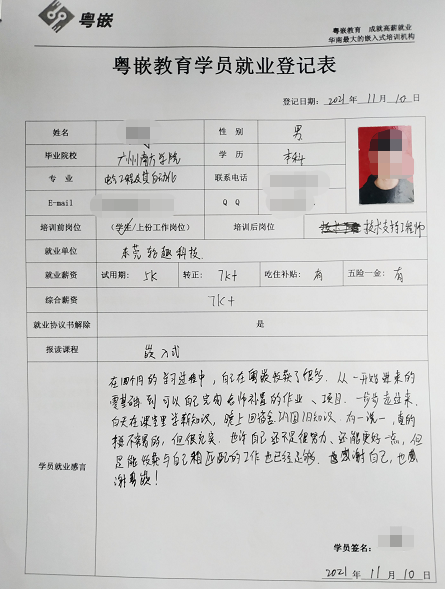 粤嵌
粤嵌教育 成就高薪就业
华南最大的嵌入式培训机构
粤嵌教育学员就业登记表
登记日期: 2021 年 11 月 10 日
姓名 性 别 男
毕业院校 广州南方学院 学 历 本科
专 业 电气工程及其自动化 联系电话
E-mail Q Q
培训前岗位 (学生/上份工作岗位) 培训后岗位 技术支持工程师
就业单位 东莞 科技
就业薪资 试用期: 5K 转正: 7K+ 吃住补贴: 有 五险一金: 有
综合薪资 7K+
就业协议书解除 是
报读课程 嵌入式
学员就业感言
在四个月的学习过程中,自己在粤嵌收获了很多.从一开始原来的
零基础到可以自己完成老师补置的作业、项目.一步步走过来.
白天在课堂里学新知识,晚上回宿舍巩固旧知识.有一说一,真的
很不容易,但很充实.也许自己还不足很努力、还能更好一点,但
是能收获与自己相匹配的工作也已经足够.感谢自己,也感
谢粤嵌!
学员签名:
2021 年 11 月 10 日